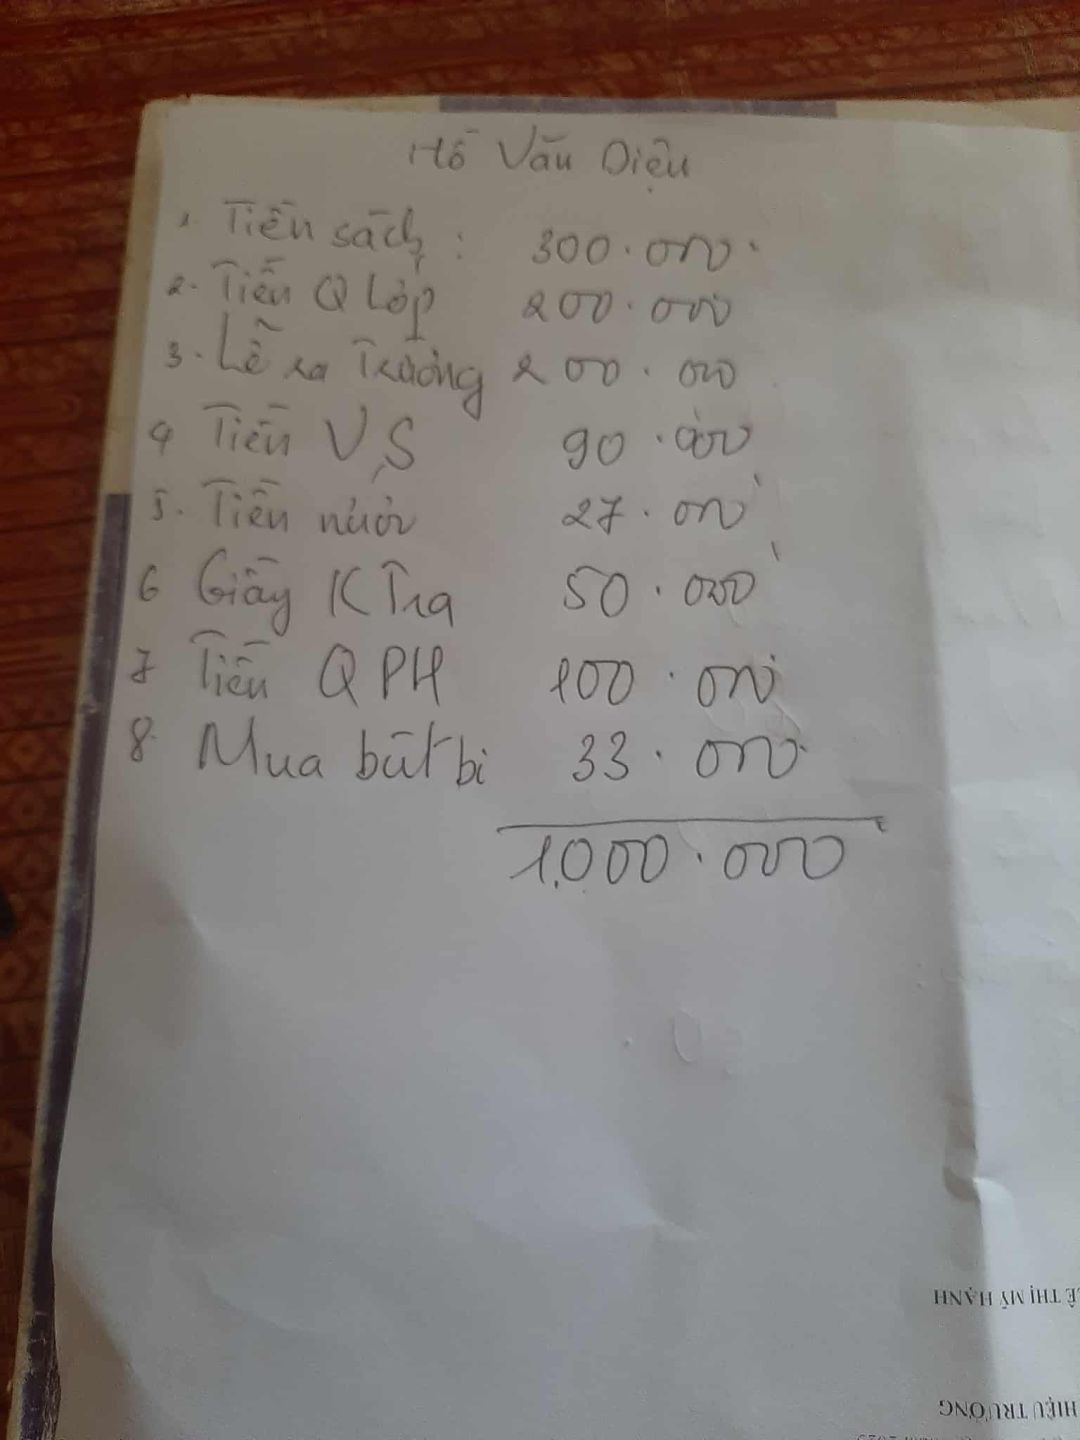 Hồ Văn Diệu
1. Tiền sách : 300.000
2. Tiền Q Lớp 200.000
3. Lễ ra Trường 200.000
4 Tiền VS 90.000
5. Tiền nước 27.000
6 Giấy K Tra 50.000
7 Tiền QPH 100.000
8. Mua bút bi 33.000
1.000.000
LÊ THỊ MỸ HẠNH
HIỆU TRƯỞNG